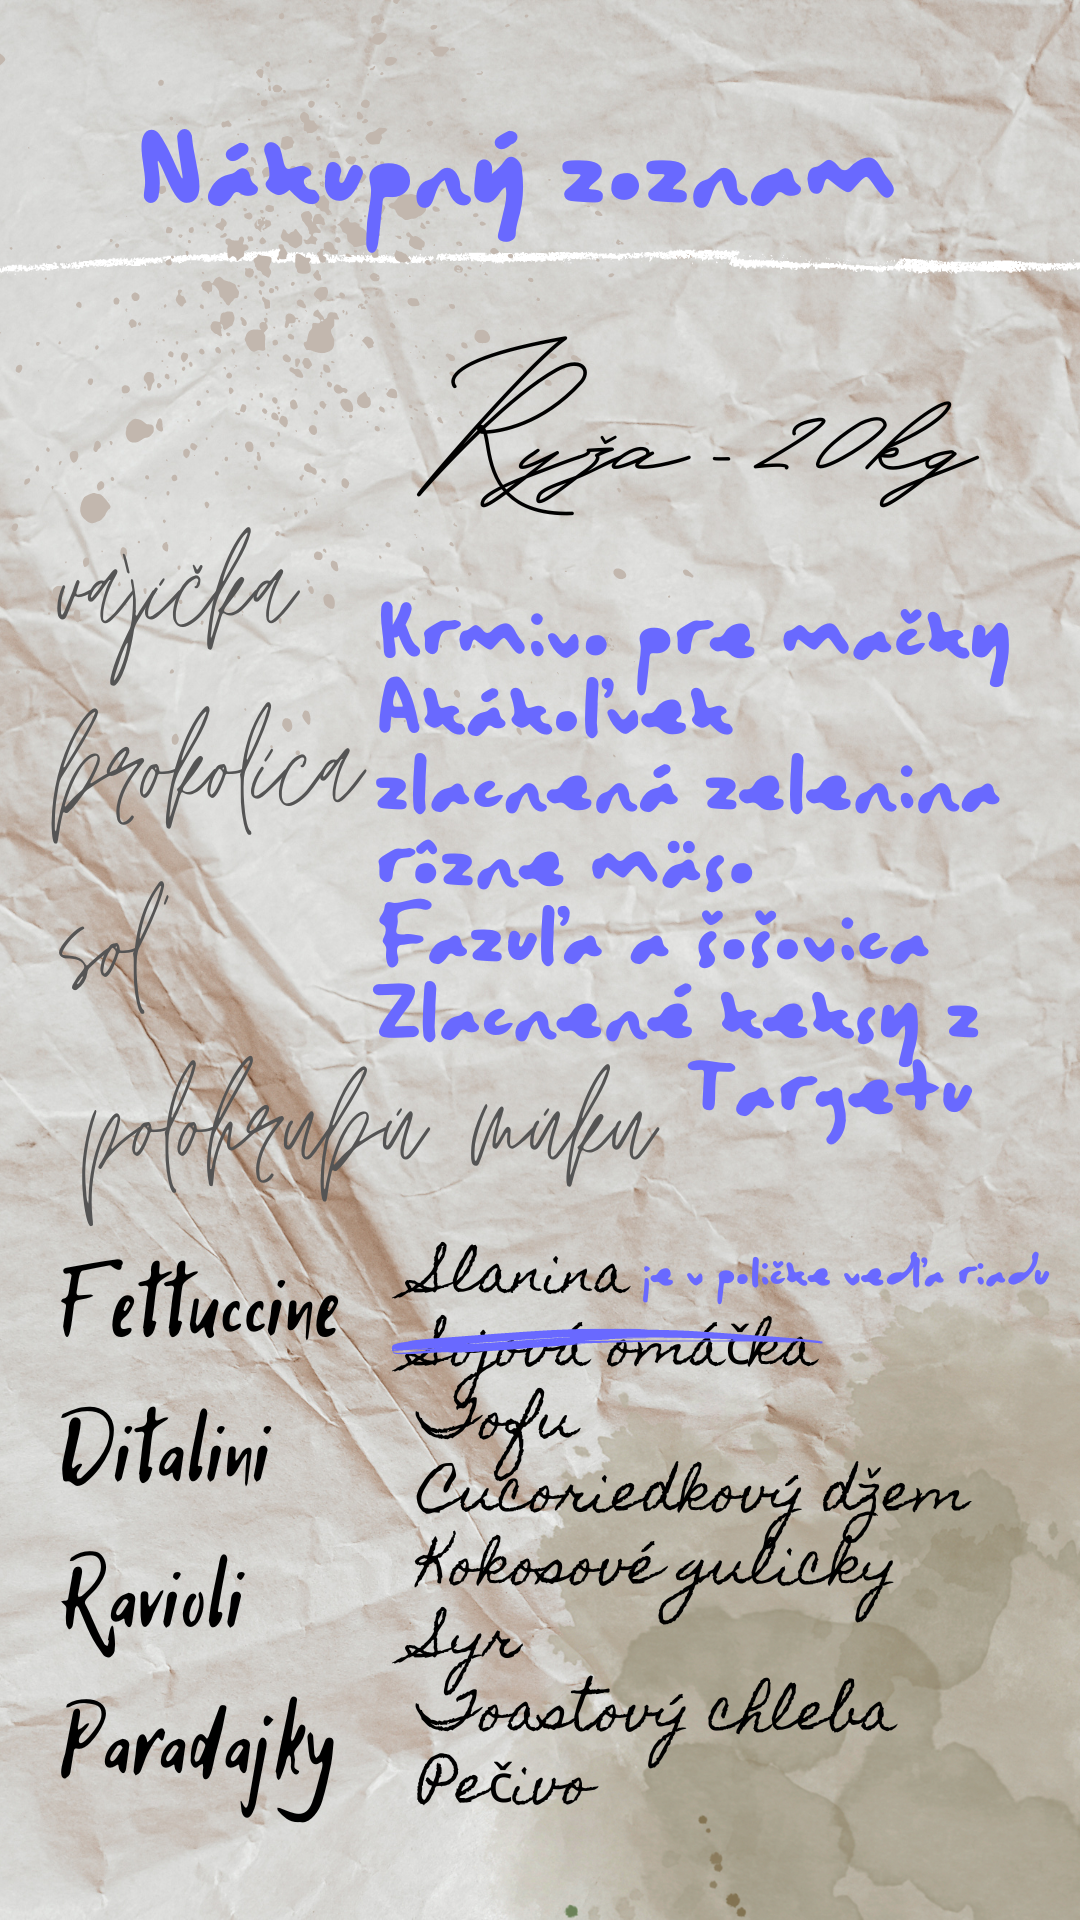 Nákupný zoznam
Ryža - 20kg
vajíčka
brokolica
soľ
polohrubú múku
Krmivo pre mačky
Akákoľvek
zlacnená zelenina
rôzne mäso
Fazuľa a šošovica
Zlacnené keksy z
Targetu
Fettuccine
Ditalini
Ravioli
Paradajky
Slanina je v poličke vedľa riadu
Sojová omáčka
Tofu
Cucoriedkový džem
Kokosové gulicky
Syr
Toastový chleba
Pečivo